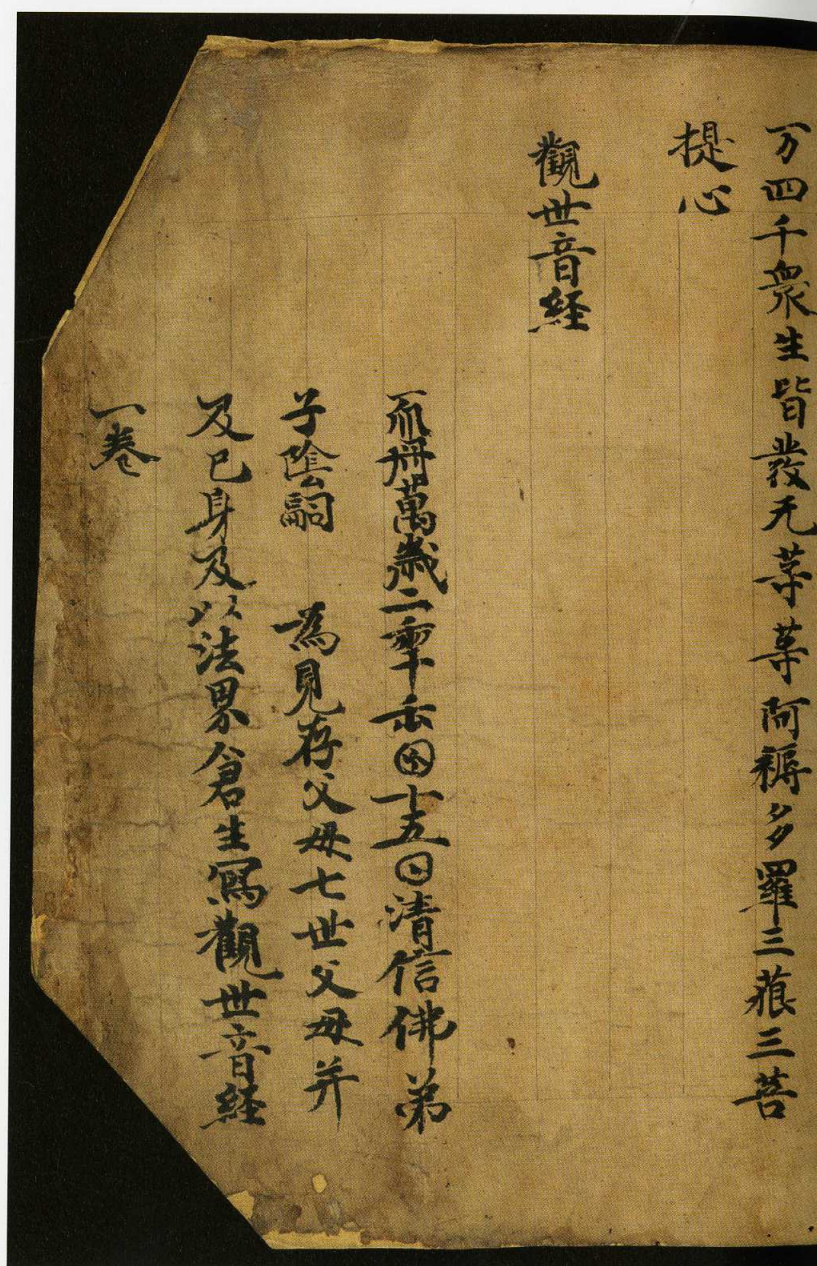 万四千衆生皆發无等等阿耨多羅三藐三菩
提心
觀世音経
𠀑冊萬歲二𠡦𠙺囝十五𡆠清信佛弟
子陰嗣　為見存父母七世父母并
及已身及以法界倉生寫觀世音経
一卷